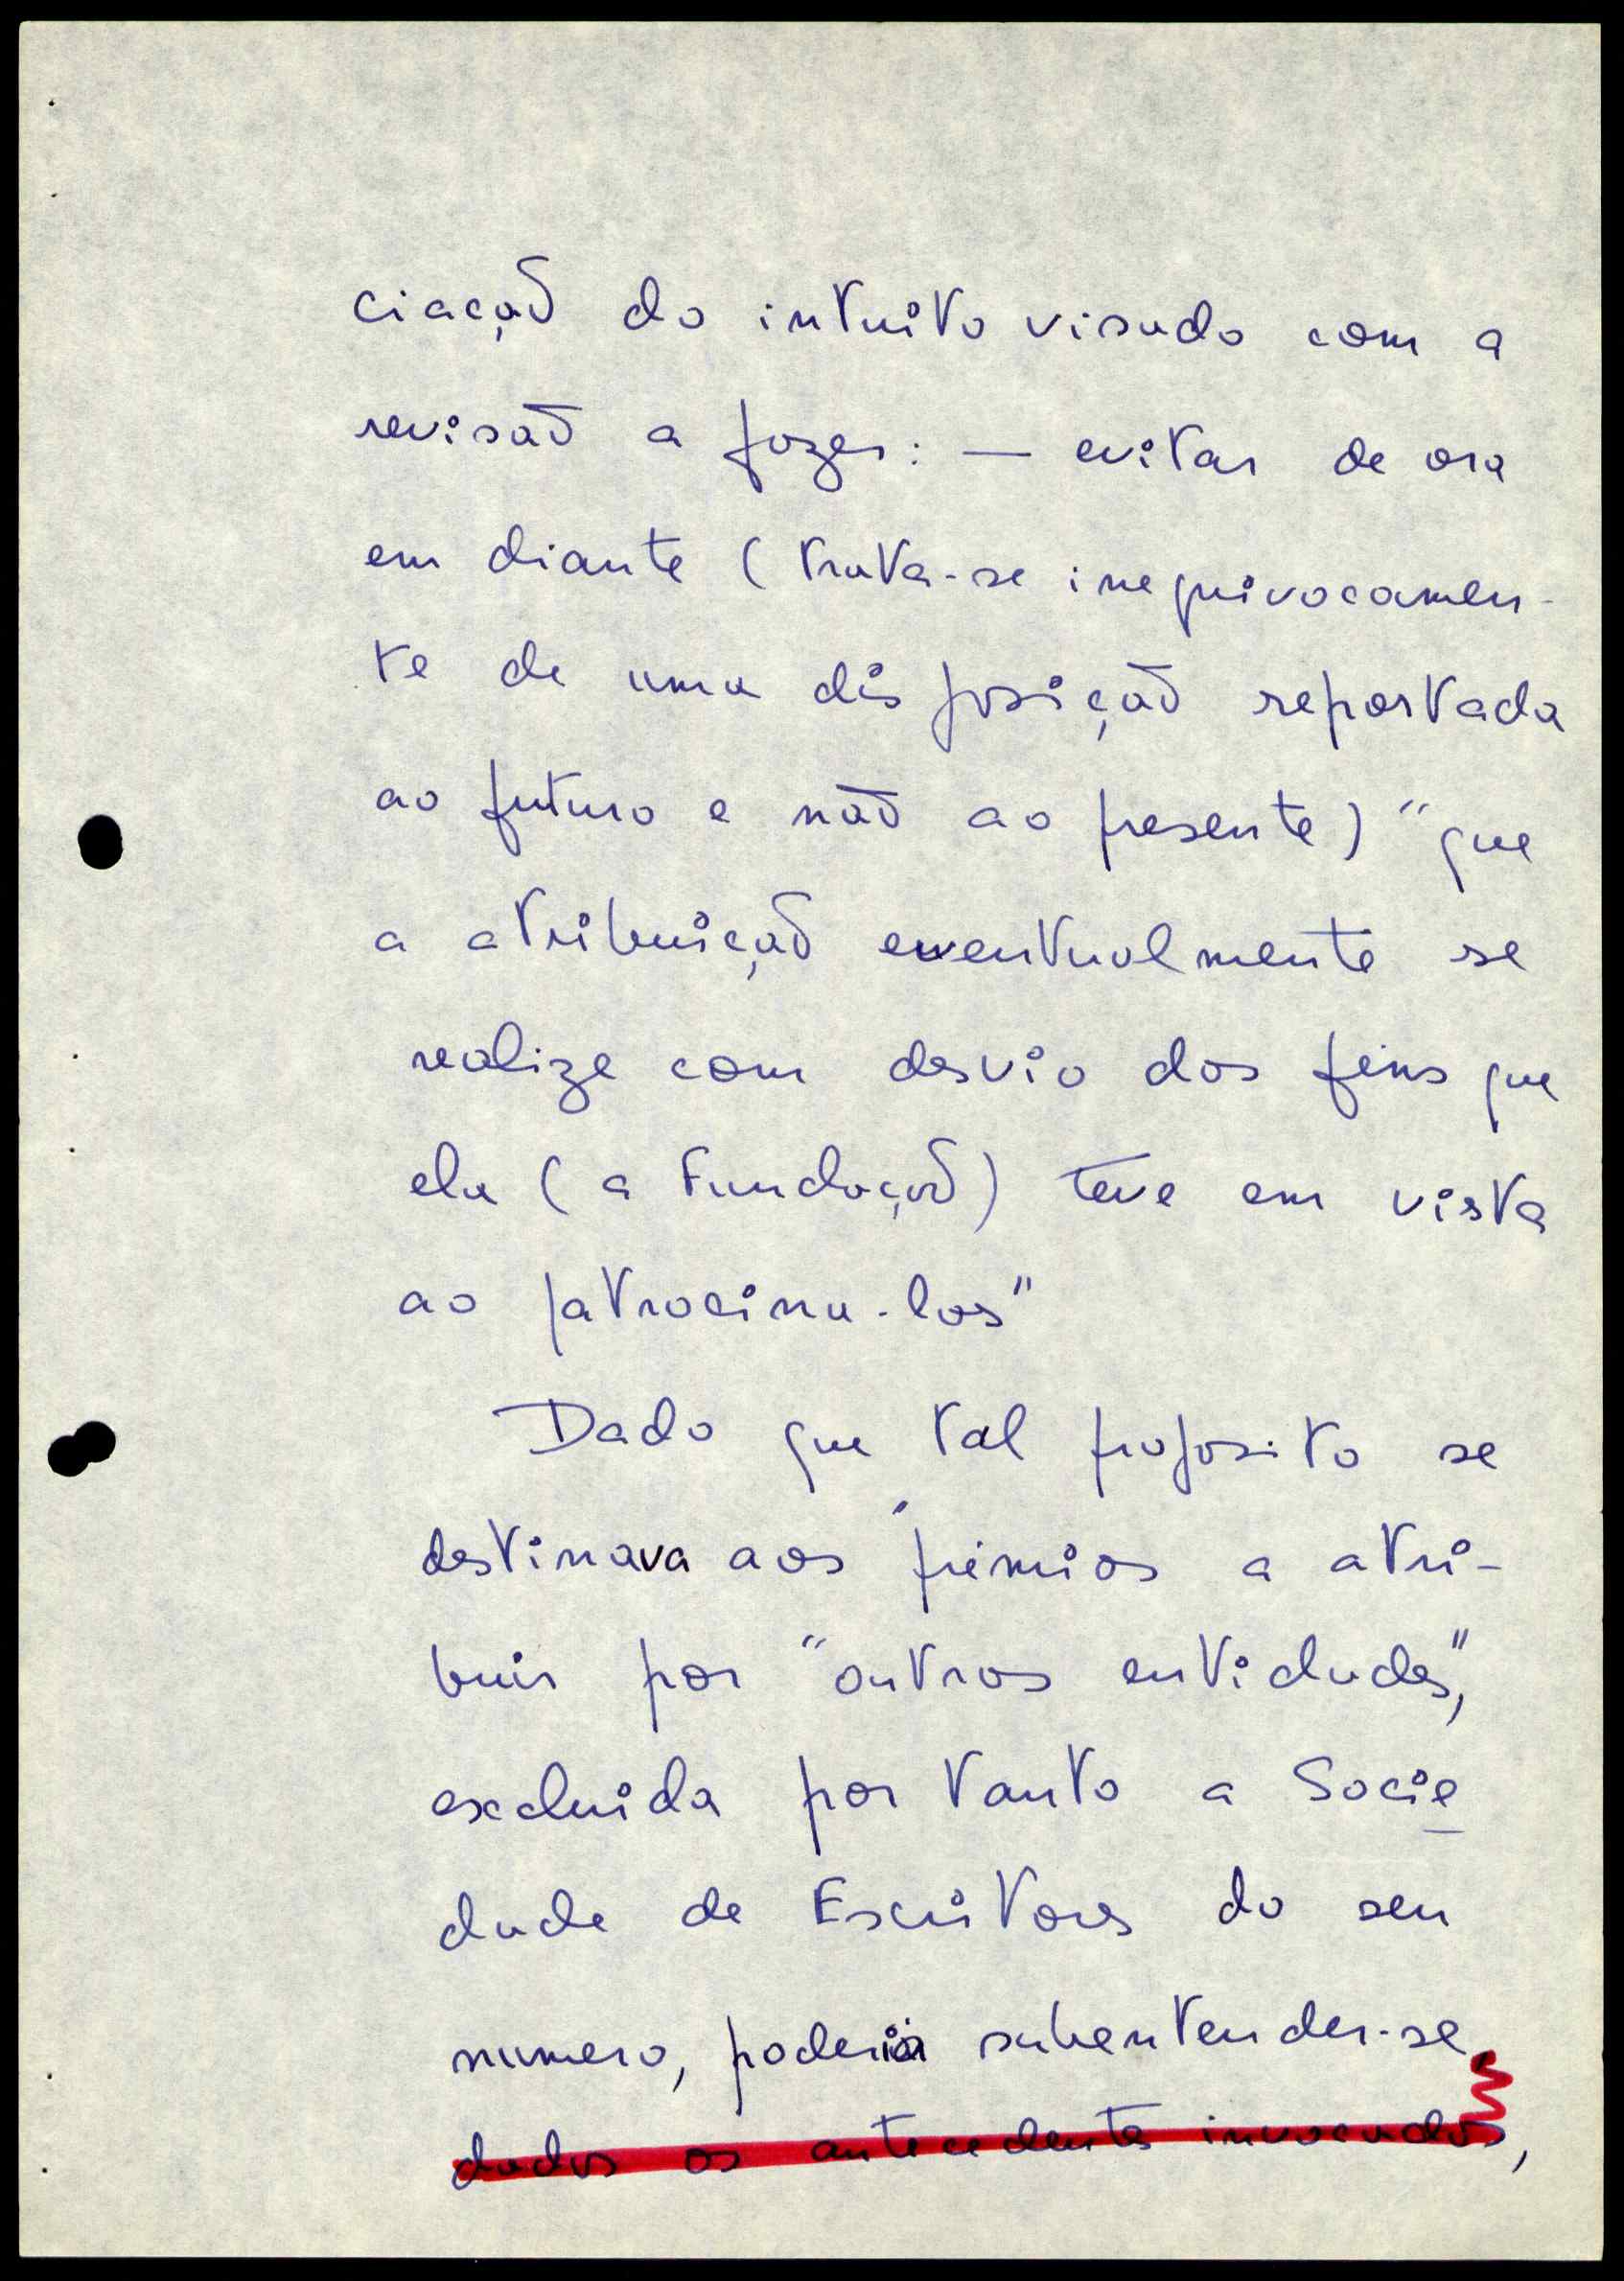 ciação do intuito visado com a
revisão a fazer: — evitar de ora
em diante (trata-se inequivocamen-
te de uma disposição reportada
ao futuro e não ao presente) "que
a atribuição eventualmente se
realize com desvio dos fins que
ela (a Fundação) teve em vista
ao patrocina-los"
Dado que tal proposito se
destinava aos prémios a atri-
buir por "outras entidades",
excluida por tanto a Socie
dade de Escritores do seu
numero, poderia subentender-se
dados os antecedentes invocados,